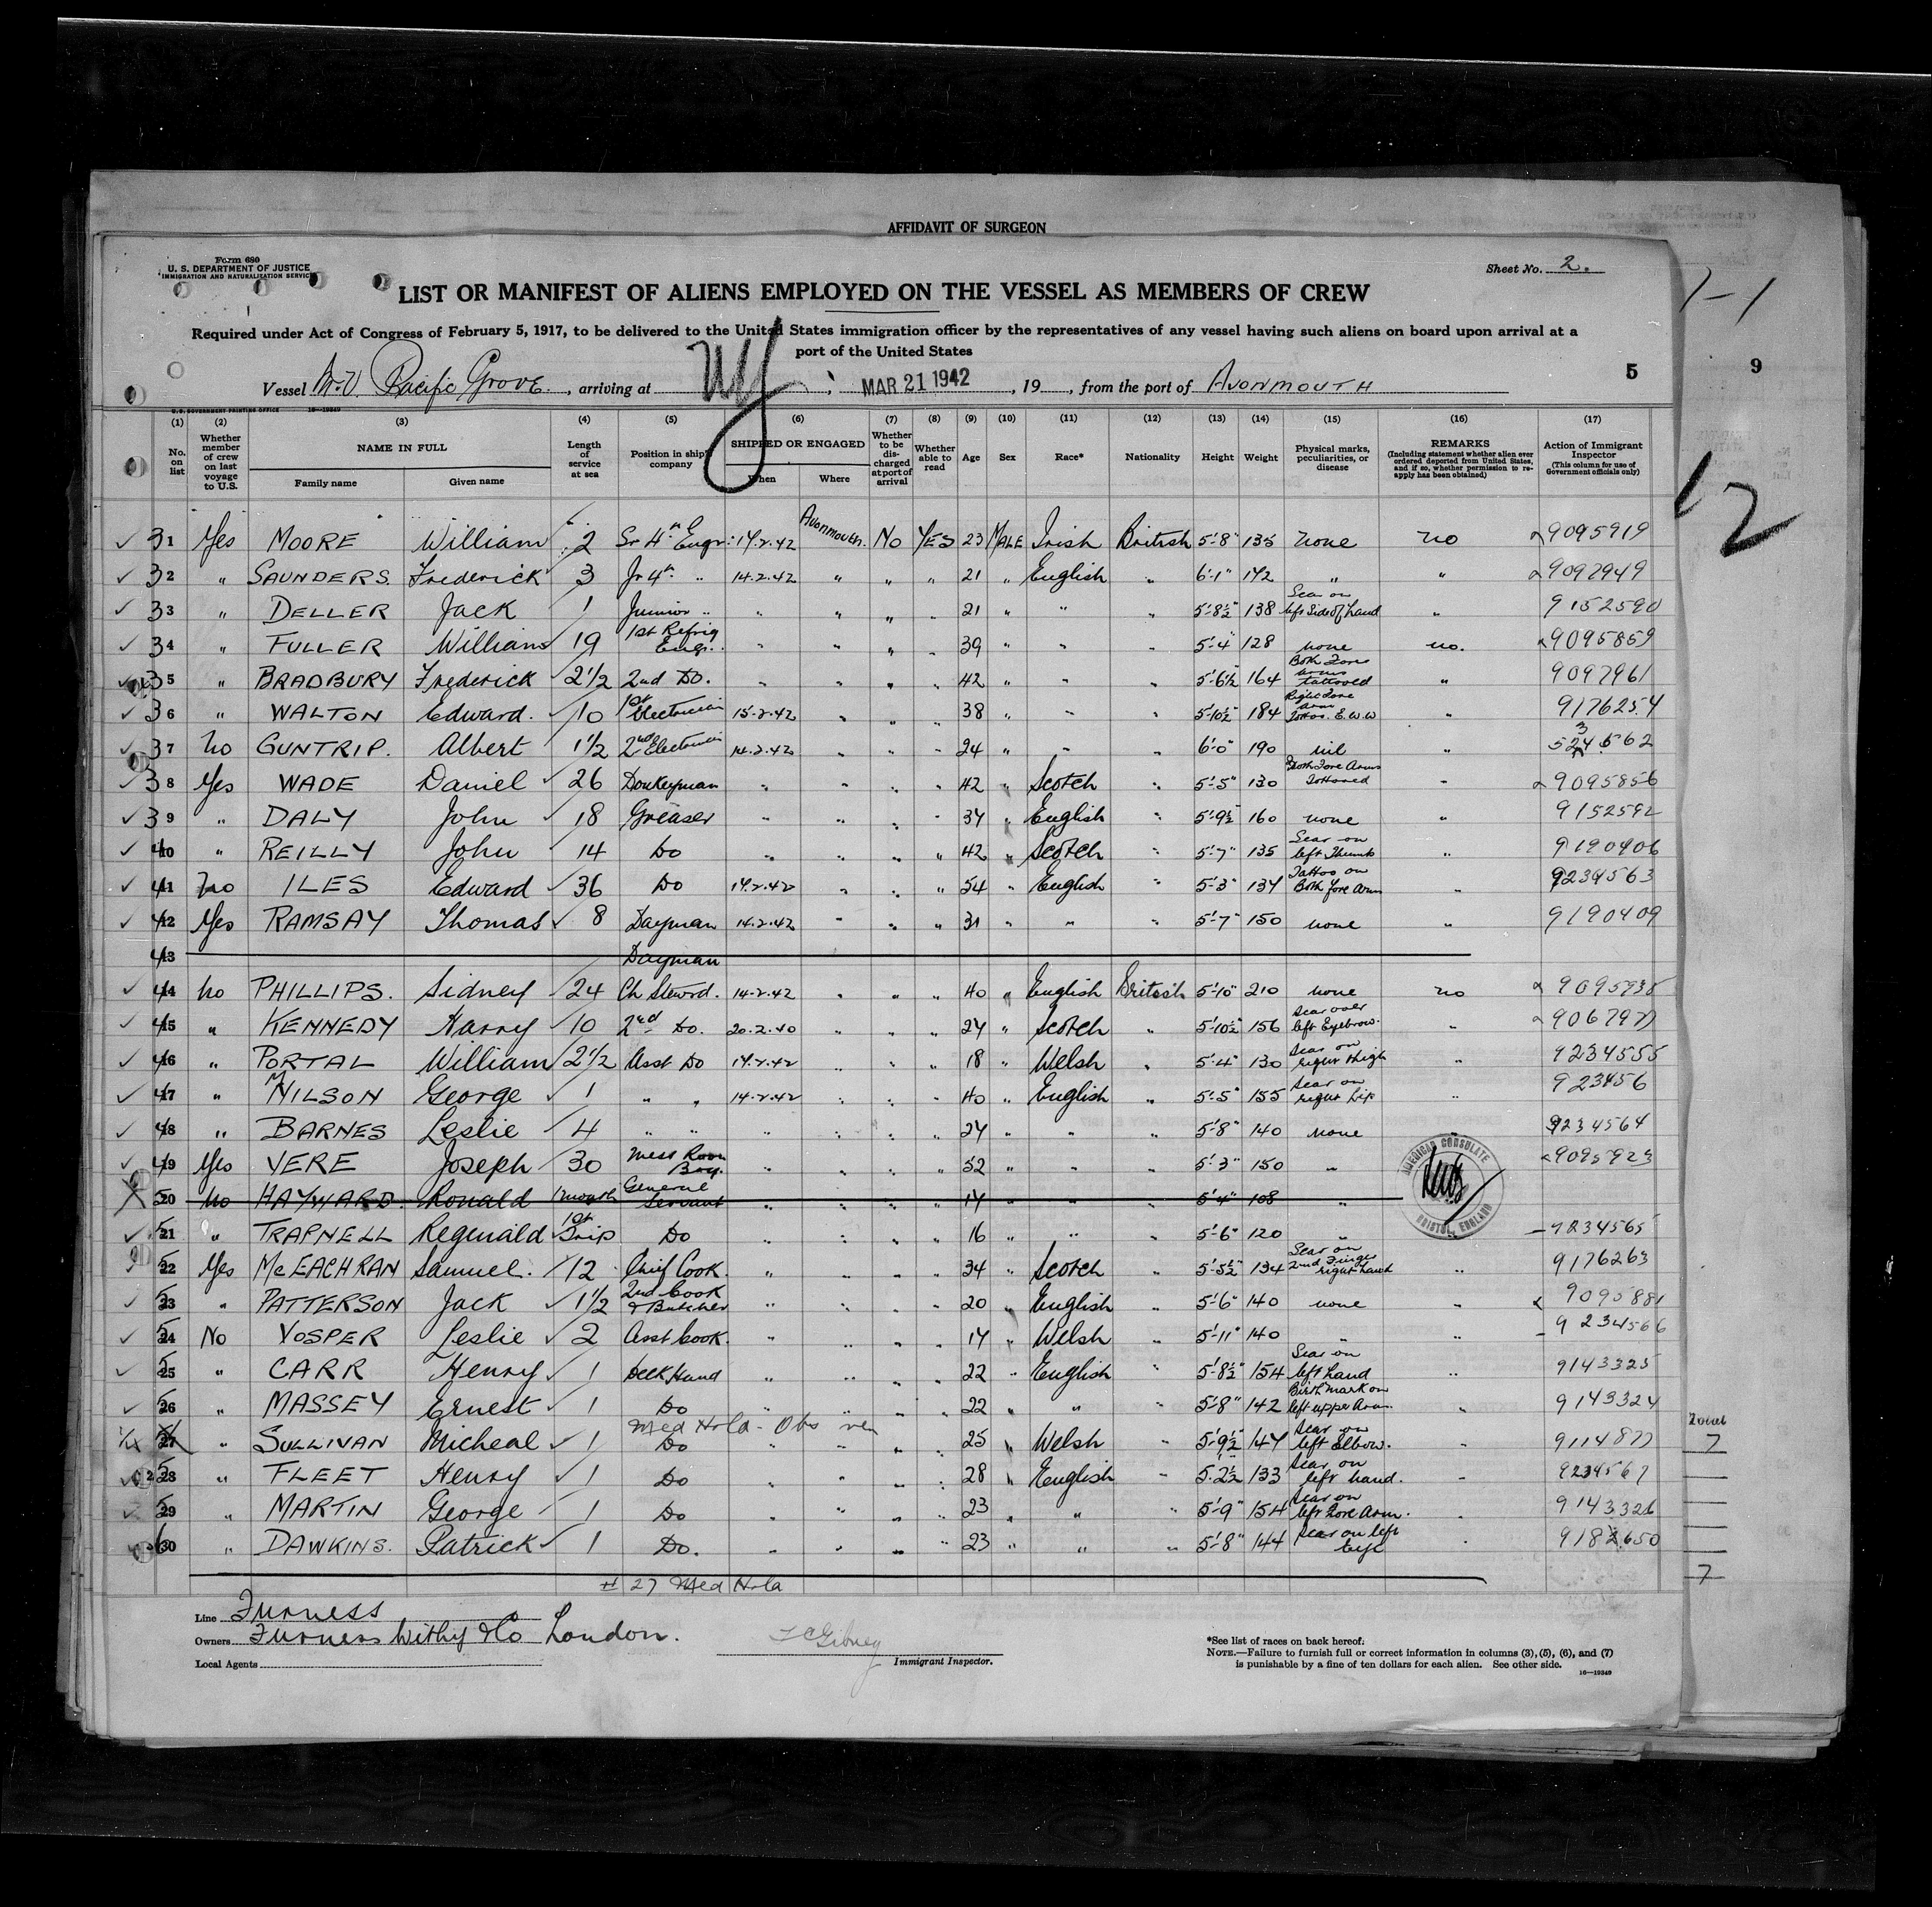 AFFIDAVIT OF SURGEON
Form 680
U. S. DEPARTMENT OF JUSTICE
IMMIGRATION AND NATURALIZATION SERVICE
Sheet No. 2.
LIST OR MANIFEST OF ALIENS EMPLOYED ON THE VESSEL AS MEMBERS OF CREW
Required under Act of Congress of February 5, 1917, to be delivered to the United States immigration officer by the representatives of any vessel having such aliens on board upon arrival at a
port of the United States
Vessel M.V. Pacific Grove, arriving at NY, MAR 21 1942, 19, from the port of AVONMOUTH
5
9
1-1
12
U. S. GOVERNMENT PRINTING OFFICE 16—19349
(1) (2) (3) (4) (5) (6) (7) (8) (9) (10) (11) (12) (13) (14) (15) (16) (17)
No. on list
Whether member of crew on last voyage to U.S.
NAME IN FULL
Family name
Given name
Length of service at sea
Position in ship's company
SHIPPED OR ENGAGED
When
Where
Whether to be discharged at port of arrival
Whether able to read
Age
Sex
Race*
Nationality
Height
Weight
Physical marks, peculiarities, or disease
REMARKS
(Including statement whether alien ever ordered deported from United States, and if so, whether permission to reapply has been obtained)
Action of Immigrant Inspector
(This column for use of Government officials only)
31 Yes MOORE William 2 Sr 4th Engr. 14.2.42 Avonmouth. No YES 23 MALE Irish British 5'-8" 135 none no 9095919
32 " SAUNDERS Frederick 3 Jr 4th " 14.2.42 " " " 21 " English " 6'-1" 172 " " 9097949
33 " DELLER Jack 1 Junior " " " " " 21 " " " 5'-8½" 138 Scar on left side of hand " 9152590
34 " FULLER William 19 1st Refrig Engr. " " " " 39 " " " 5'-4" 128 none no. 9095859
35 " BRADBURY Frederick 2½ 2nd Do. " " " " 42 " " " 5'-6½ 164 Both Fore arms tattooed " 9097961
36 " WALTON Edward. 10 1st Electrician 15.2.42 " " " 38 " " " 5'-10½" 184 Right Fore arm Tattoo. E.W.W " 9176254
37 No GUNTRIP. Albert 1½ 2nd Electrician 14.2.42 " " " 24 " " " 6'-0" 190 nil "
38 Yes WADE Daniel 26 Donkeyman " " " " 42 " Scotch " 5'-5" 130 Both Fore Arms Tattooed " 9095856
39 " DALY John 18 Greaser " " " " 34 " English " 5'-9½" 160 none " 9152592
40 " REILLY John 14 Do " " " " 42 " Scotch " 5'-7" 135 Scar on left Thumb " 9190406
41 No ILES Edward 36 Do 14.2.42 " " " 54 " English " 5'-3" 134 Tattoo on Both fore Arm " 9234563
42 Yes RAMSAY Thomas 8 Dayman 14.2.42 " " " 31 " " " 5'-7" 150 none " 9190409
43 Dayman
44 No PHILLIPS. Sidney 24 Ch Steward. 14.2.42 " " " 40 " English British 5'-10" 210 none no 9095935
45 " KENNEDY Harry 10 2nd Do. 20.2.40 " " " 24 " Scotch " 5'-10½" 156 Scar over left Eyebrow. " 9067977
46 " PORTAL William 2½ Asst Do 14.2.42 " " " 18 " Welsh " 5'-4" 130 Scar on right thigh " 9234555
47 " NILSON George 1 " " 14.2.42 " " " 40 " English " 5'-5" 155 Scar on right hip " 923456
48 " BARNES Leslie 4 " " " " " " 24 " " " 5'-8" 140 none 9234564
49 Yes VERE Joseph 30 Mess Room Boy. " " " " 52 " " " 5'-3" 150 " 9095923
50 No HAYWARD. Ronald 1 month General Servant " " " " 14 " " " 5'-4" 108 "
51 " TRAPNELL Reginald 1st Trip Do " " " " 16 " " " 5'-6" 120 " 9234565
AMERICAN CONSULATE BRISTOL, ENGLAND
52 Yes McEACHRAN Samuel. 12 Chief Cook. " " " " 34 " Scotch " 5'-5½" 134 Scar on 2nd Finger right hand " 9176263
53 " PATTERSON Jack 1½ 2nd Cook & Butcher " " " " 20 " English " 5'-6" 140 none " 9095881
54 No VOSPER Leslie 2 Asst Cook. " " " " 17 " Welsh " 5'-11" 140 " " 9234566
55 " CARR Henry 1 Deck Hand " " " " 22 " English " 5'-8½" 154 Scar on left hand " 9143325
56 " MASSEY Ernest 1 Do " " " " 22 " " " 5'-8" 142 Birth mark on left upper Arm. " 9143324
Med Hold - Obs
57 " SULLIVAN Micheal 1 Do " " " " 25 " Welsh " 5'-9½" 147 Scar on left Elbow. " 9114877
58 " FLEET Henry 1 Do " " " " 28 " English " 5'-2½ 133 Scar on left hand. " 9234567
59 " MARTIN George 1 Do " " " " 23 " " " 5'-9" 154 Scar on left Fore Arm. " 9143326
60 " DAWKINS. Patrick 1 Do. " " " " 23 " " " 5'-8" 144 Scar on left Eye 9182650
# 27 Med Hold
7
7
Line Furness
Owners Furness Withy & Co London.
Local Agents
Immigrant Inspector.
*See list of races on back hereof.
NOTE.—Failure to furnish full or correct information in columns (3), (5), (6), and (7)
is punishable by a fine of ten dollars for each alien. See other side. 16—19349